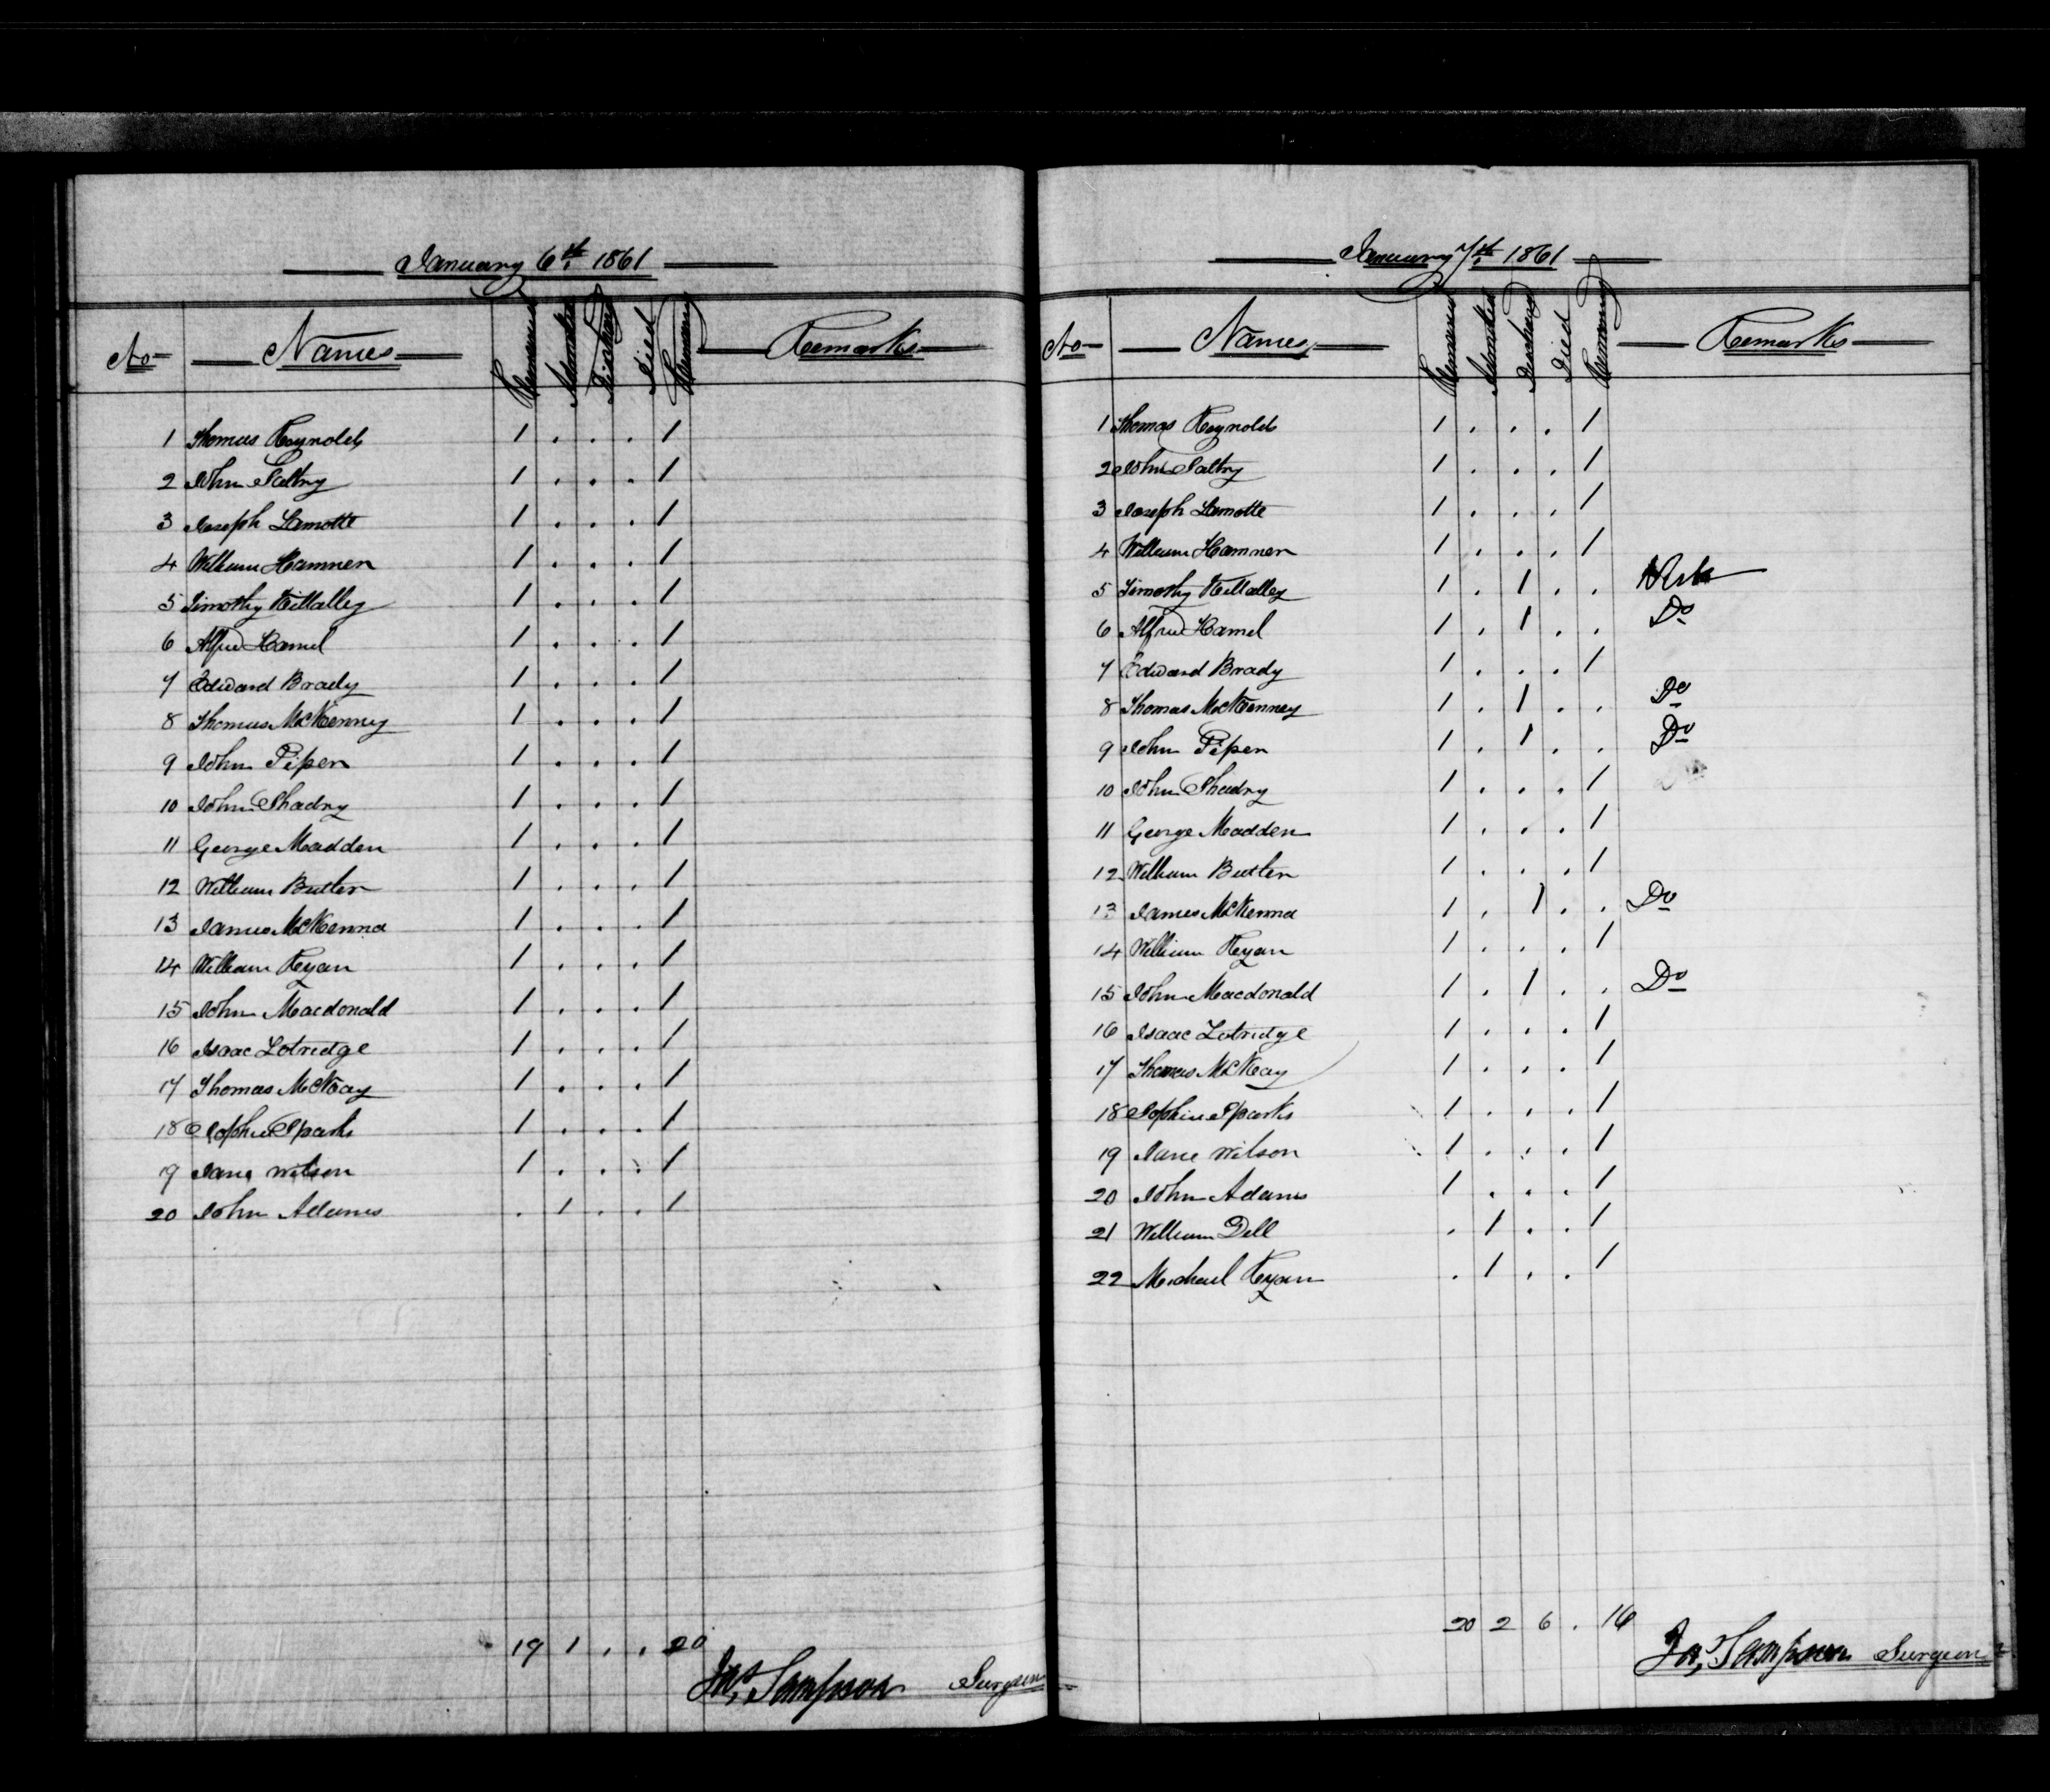 January 6th 1861
No Names Remained Admitted Discharg Died Remaing Remarks
1 Thomas Reynolds 1 . . . 1
2 John Saltry 1 . . . 1
3 Joseph Lamotte 1 . . . 1
4 William Hamner 1 . . . 1
5 Timothy Killalley 1 . . . 1
6 Alfred Hamel 1 . . . 1
7 Edward Brady 1 . . . 1
8 Thomas McKenney 1 . . . 1
9 John Piper 1 . . . 1
10 John Shadry 1 . . . 1
11 George Madden 1 . . . 1
12 William Butler 1 . . . 1
13 James McKenna 1 . . . 1
14 William Ryan 1 . . . 1
15 John Macdonald 1 . . . 1
16 Isaac Lotridge 1 . . . 1
17 Thomas McKay 1 . . . 1
18 Sophia Sparks 1 . . . 1
19 Jane Wilson 1 . . . 1
20 John Adams . 1 . . 1
19 1 . . 20
Jas Sampson Surgeon
January 7th 1861
No Names Remained Admitted Discharg Died Remaing Remarks
1 Thomas Reynolds 1 . . . 1
2 John Saltry 1 . . . 1
3 Joseph Lamotte 1 . . . 1
4 William Hamner 1 . . . 1
5 Timothy Killalley 1 . 1 . .
6 Alfred Hamel 1 . 1 . . Do
7 Edward Brady 1 . . . 1
8 Thomas McKenney 1 . 1 . . Do
9 John Piper 1 . 1 . . Do
10 John Shadry 1 . . . 1
11 George Madden 1 . . . 1
12 William Butler 1 . . . 1
13 James McKenna 1 . 1 . . Do
14 William Ryan 1 . . . 1
15 John Macdonald 1 . 1 . . Do
16 Isaac Lotridge 1 . . . 1
17 Thomas McKay 1 . . . 1
18 Sophia Sparks 1 . . . 1
19 Jane Wilson 1 . . . 1
20 John Adams 1 . . . 1
21 William Dell . 1 . . 1
22 Michael Ryan . 1 . . 1
20 2 6 . 16
Jas Sampson Surgeon